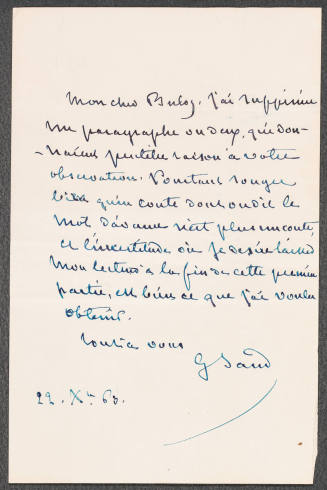 Mon cher Buloz, j'ai supprimé
un paragraphe ou deux, qui don-
-naient peut-être raison à votre
observation. Pourtant songez
bien qu'un conte dont on dit le
mot d'avance n'est plus un conte,
et l'incertitude où je desire laisser
mon lecteur à la fin de cette première
partie, est bien ce que j'ai voulu
obtenir.
tout à vous
G Sand
22. Xbre 63.